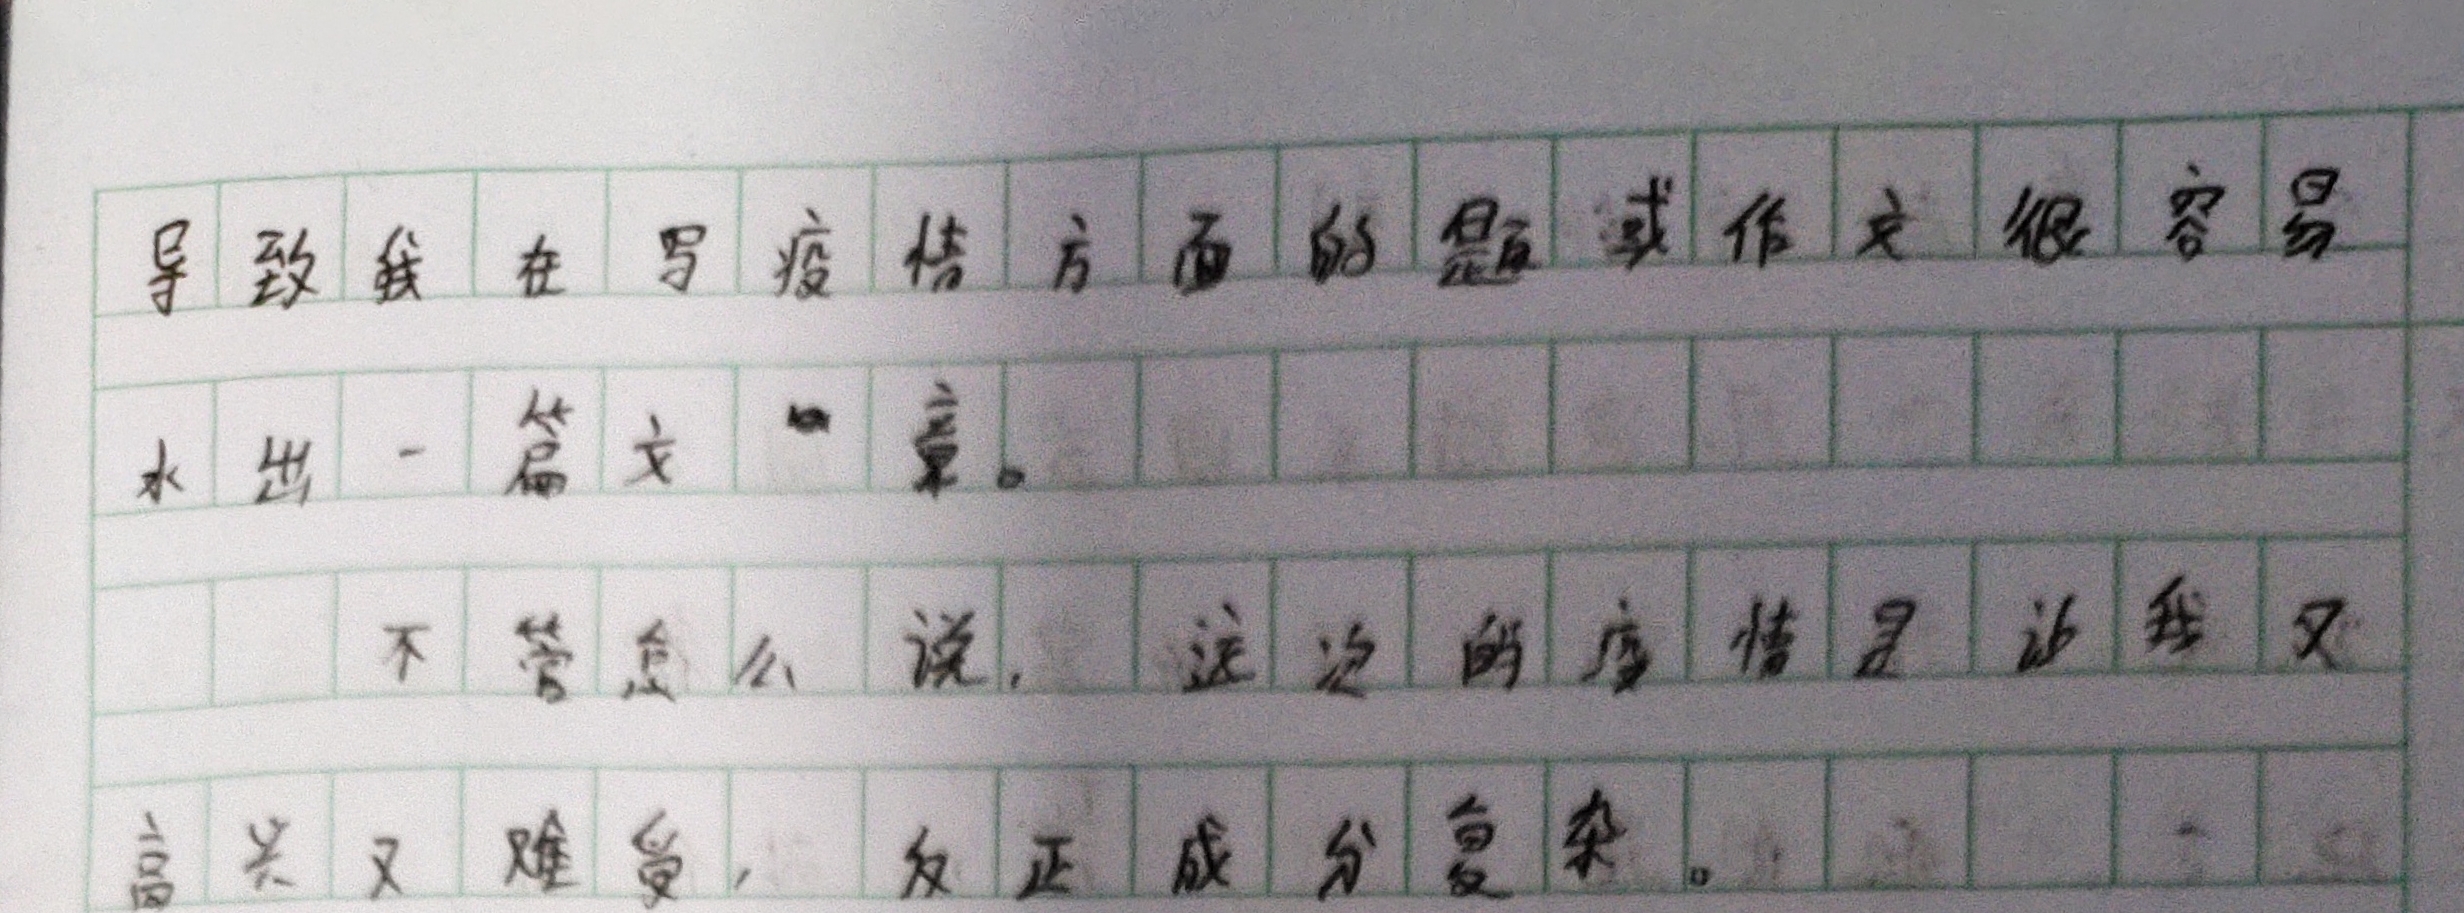 导致我在写疫情方面的题或作文很容易
水出一篇文章。
不管怎么说，这次的疫情是让我又
高兴又难受，反正成分复杂。